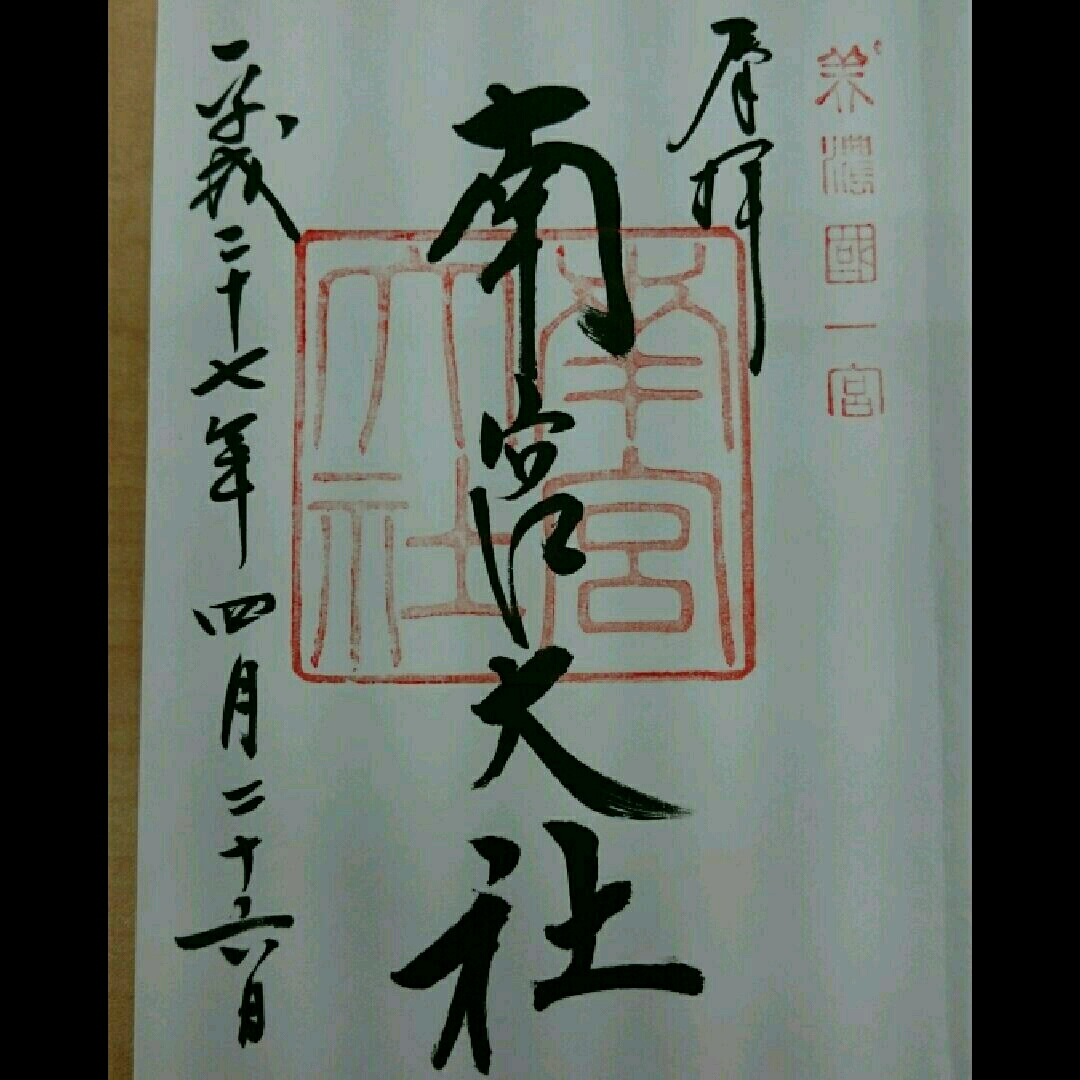 美濃國一宮
奉拝
南宮大社
南宮大社
平成二十七年四月二十六日